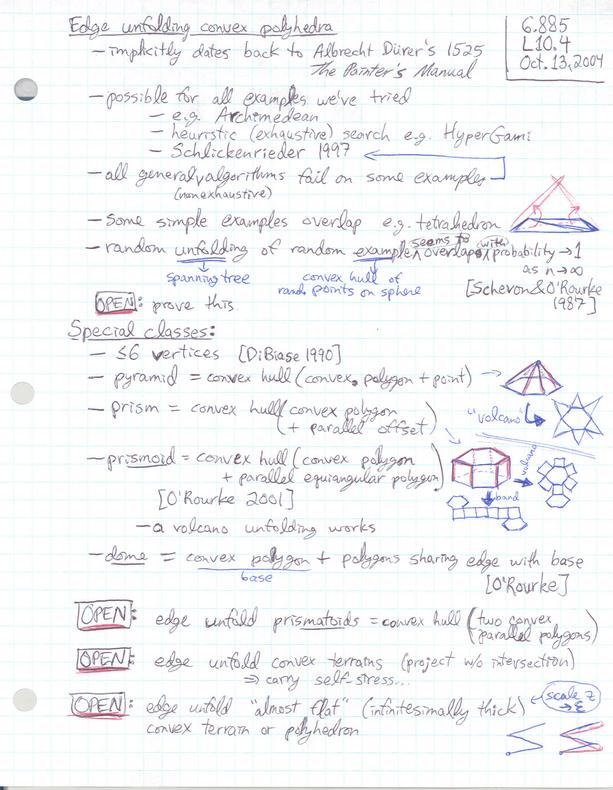 Edge unfolding convex polyhedra
6.885
L10.4
Oct. 13, 2004
– implicitly dates back to Albrecht Dürer's 1525
The Painter's Manual
– possible for all examples we've tried
– e.g. Archimedean
– heuristic (exhaustive) search e.g. HyperGami
– Schlickenrieder 1997
– all general algorithms fail on some examples
(nonexhaustive)
– some simple examples overlap e.g. tetrahedron
– random unfolding of random example seems to overlap with probability → 1
as n → ∞
spanning tree
convex hull of
rand. points on sphere
[Schevon & O'Rourke
1987]
OPEN: prove this
Special classes:
– ≤6 vertices [DiBiase 1990]
– pyramid = convex hull (convex polygon + point)
– prism = convex hull (convex polygon
+ parallel offset)
"volcano"
– prismoid = convex hull (convex polygon
+ parallel equiangular polygon)
volcano
band
[O'Rourke 2001]
– a volcano unfolding works
– dome = convex polygon + polygons sharing edge with base
base
[O'Rourke]
OPEN: edge unfold prismatoids = convex hull (two convex
parallel polygons)
OPEN: edge unfold convex terrains (project w/o intersection)
⇒ carry self-stress...
OPEN: edge unfold "almost flat" (infinitesimally thick)
convex terrain or polyhedron
scale z
→ ε